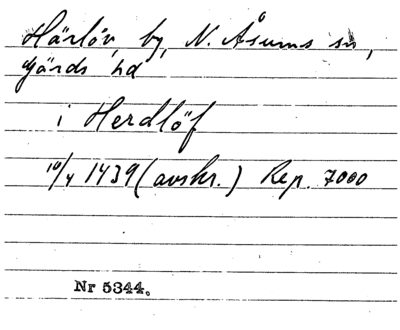 Härlöv, by, N. Åsums sn,
Gärds hd
i Herdlöf
10/4 1439 (avskr.) Rep. 7000
Nr 5344.